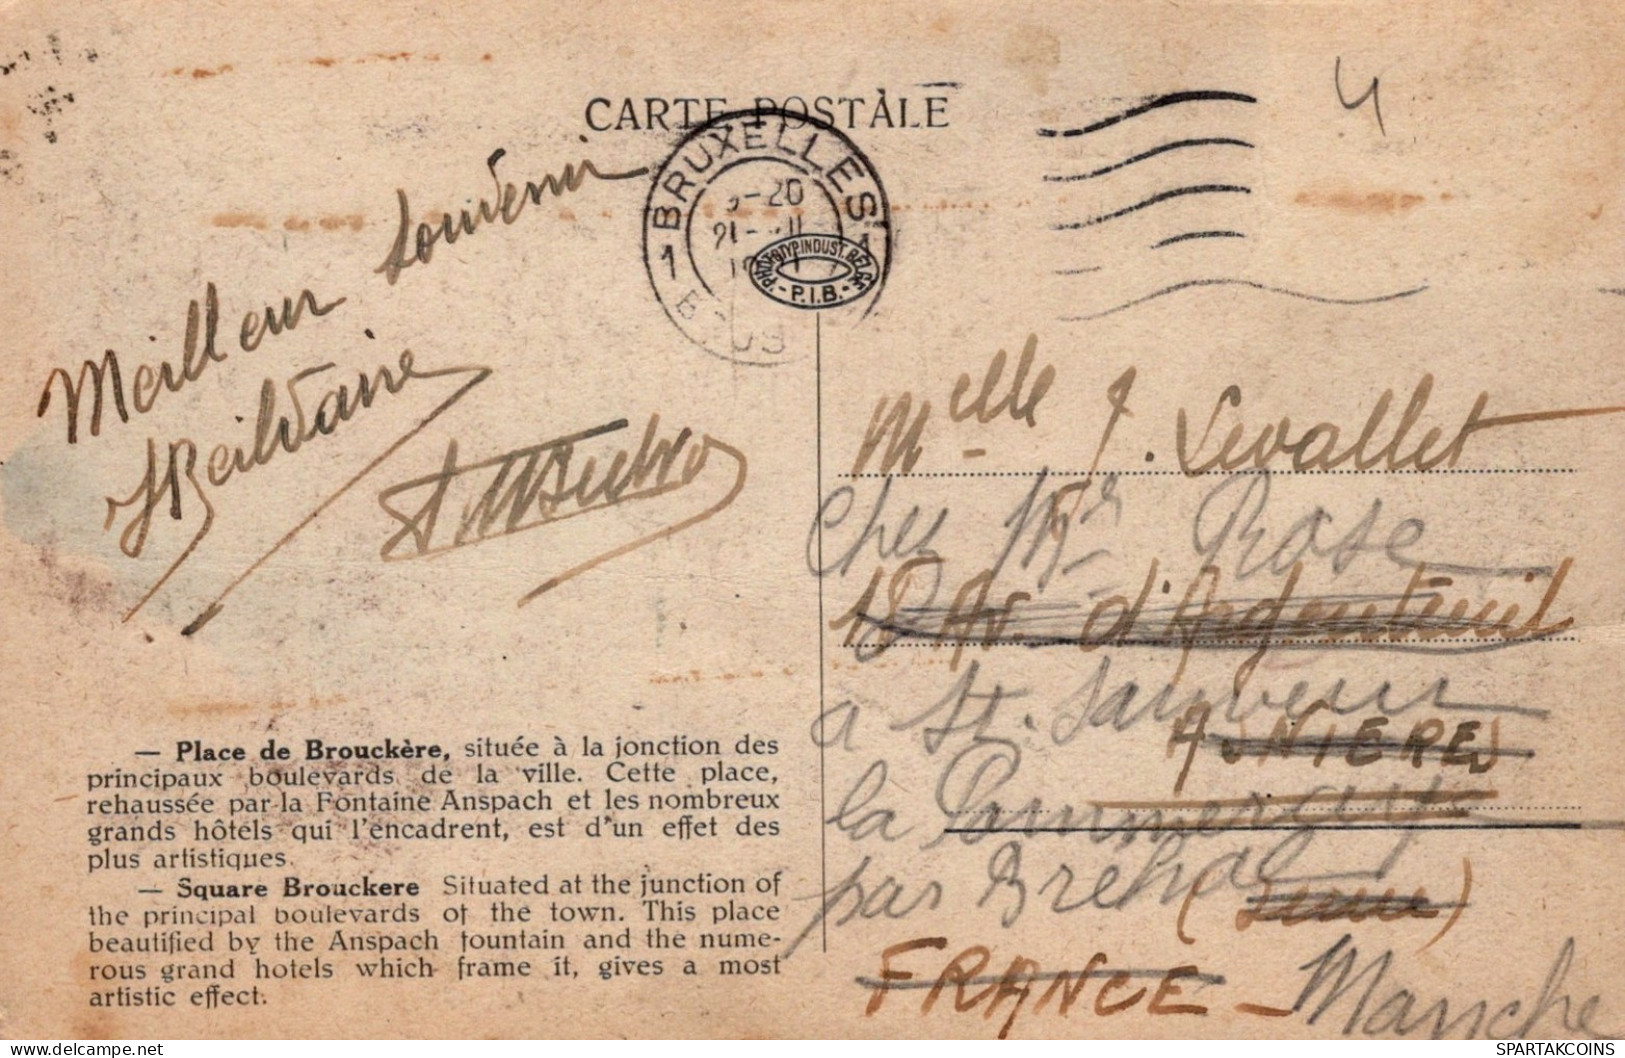 CARTE POSTALE
4
BRUXELLES
1 1
-20
21-
PHOTOTYP. INDUST. BELGE
- P.I.B. -
Meilleur souvenir
Melle J. Levallet
chez Mr Rose
18 Av. d'Argenteuil
a St. Sauveur
ASNIERES
la Pommeraye
par Brehal
(Seine)
FRANCE - Manche
— Place de Brouckère, située à la jonction des
principaux boulevards de la ville. Cette place,
rehaussée par la Fontaine Anspach et les nombreux
grands hôtels qui l'encadrent, est d'un effet des
plus artistiques.
— Square Brouckere Situated at the junction of
the principal boulevards of the town. This place
beautified by the Anspach fountain and the nume-
rous grand hotels which frame it, gives a most
artistic effect.
delcampe.net
SPARTAKCOINS